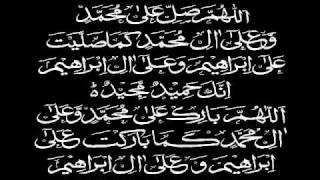 اللهم صل على محمد
وعلى ال محمد كما صليت
على ابراهيم وعلى ال ابراهيم
انك حميد مجيد
اللهم بارك على محمد وعلى
ال محمد كما باركت على
ابراهيم وعلى ال ابراهيم